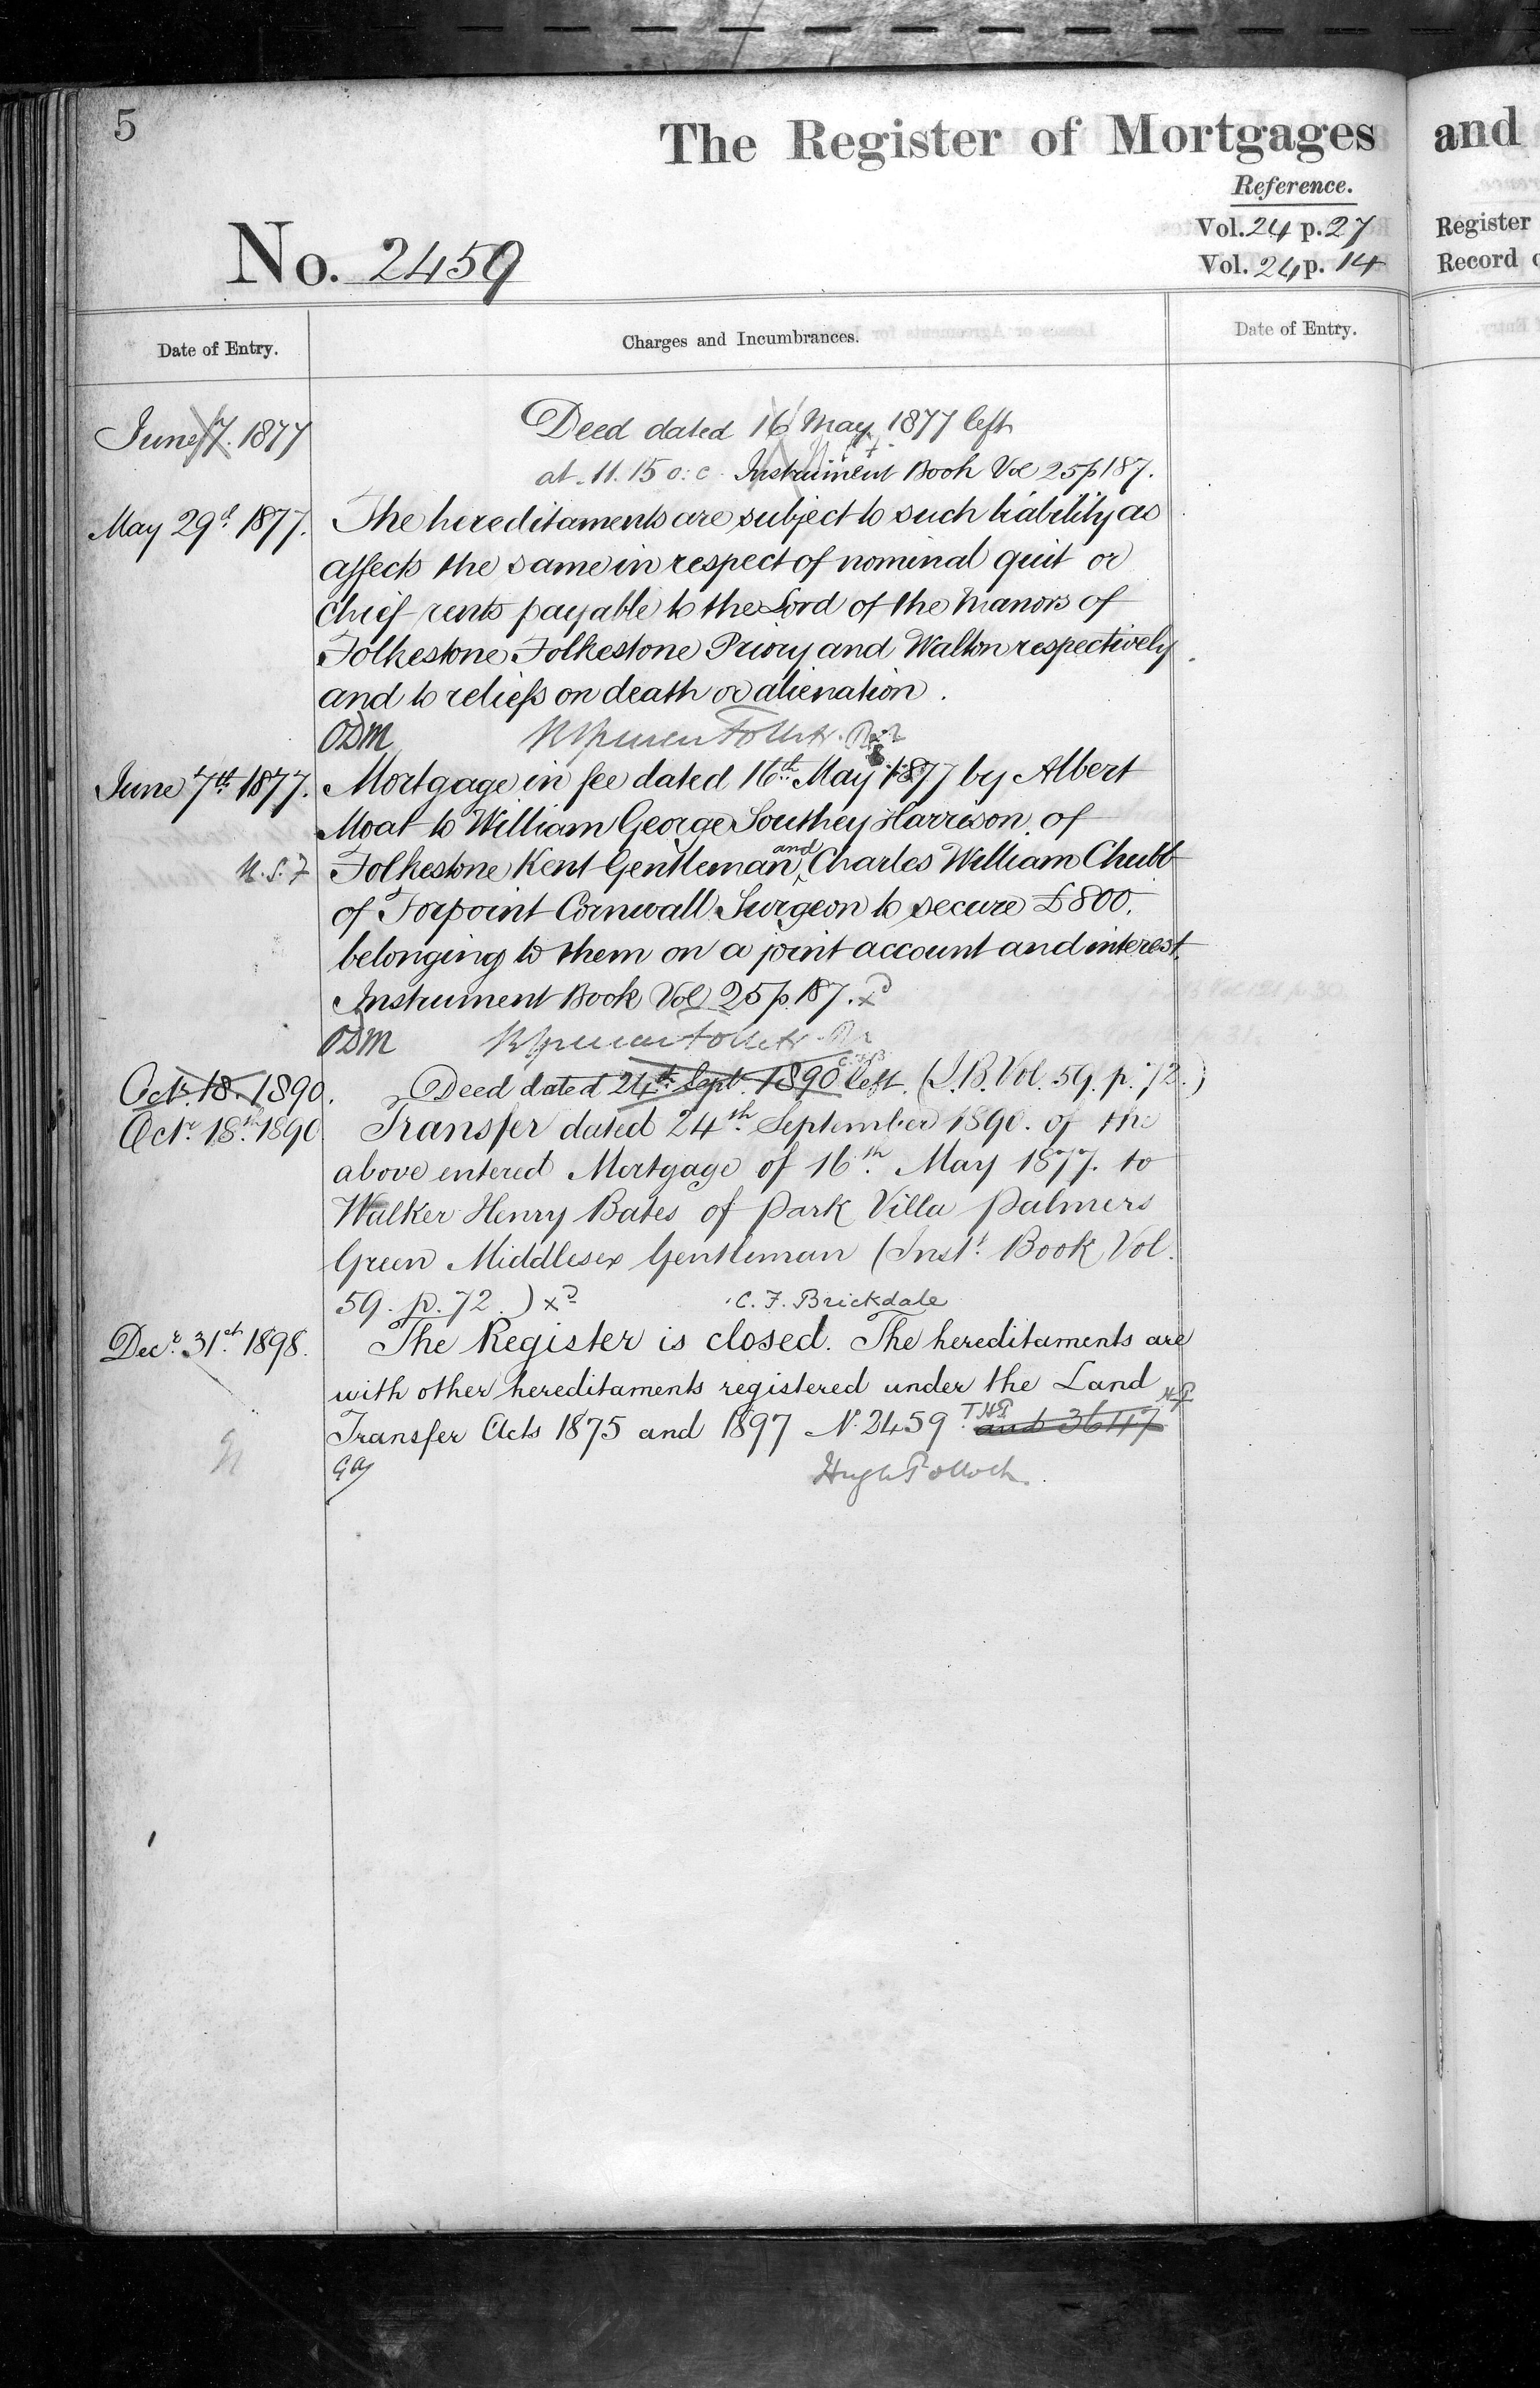 5
The Register of Mortgages and
Reference.
Vol. 24 p. 27 Register
Vol. 24 p. 14 Record
No. 2459
Date of Entry. Charges and Incumbrances. Date of Entry.
June 7. 1877 Deed dated 16 May 1877 left
at 11.15 o:c Instrument Book Vol 25 p 187.
May 29th 1877. The hereditaments are subject to such liability as
affects the same in respect of nominal quit or
chief rents payable to the Lord of the Manors of
Folkestone Folkestone Priory and Walton respectively
and to reliefs on death or alienation.
ODM
June 7th 1877. Mortgage in fee dated 16th May 1877 by Albert
Moat to William George Southey Harrison of
Folkestone Kent Gentleman and Charles William Chubb
of Torpoint Cornwall Surgeon to secure £800.
belonging to them on a joint account and interest.
Instrument Book Vol 25 p. 187.
ODM
Octr. 18. 1890. Deed dated 24th Sept. 1890 left (I.B. Vol. 59. p. 72.)
Octr 18th 1890 Transfer dated 24th September 1890. of the
above entered Mortgage of 16th May 1877. to
Walker Henry Bates of Park Villa Palmers
Green Middlesex Gentleman (Inst. Book Vol.
59. p. 72.) C. F. Brickdale
Decr. 31st 1898. The Register is closed. The hereditaments are
with other hereditaments registered under the Land
Transfer Acts 1875 and 1897 N. 2459 and
Hugh Pollock